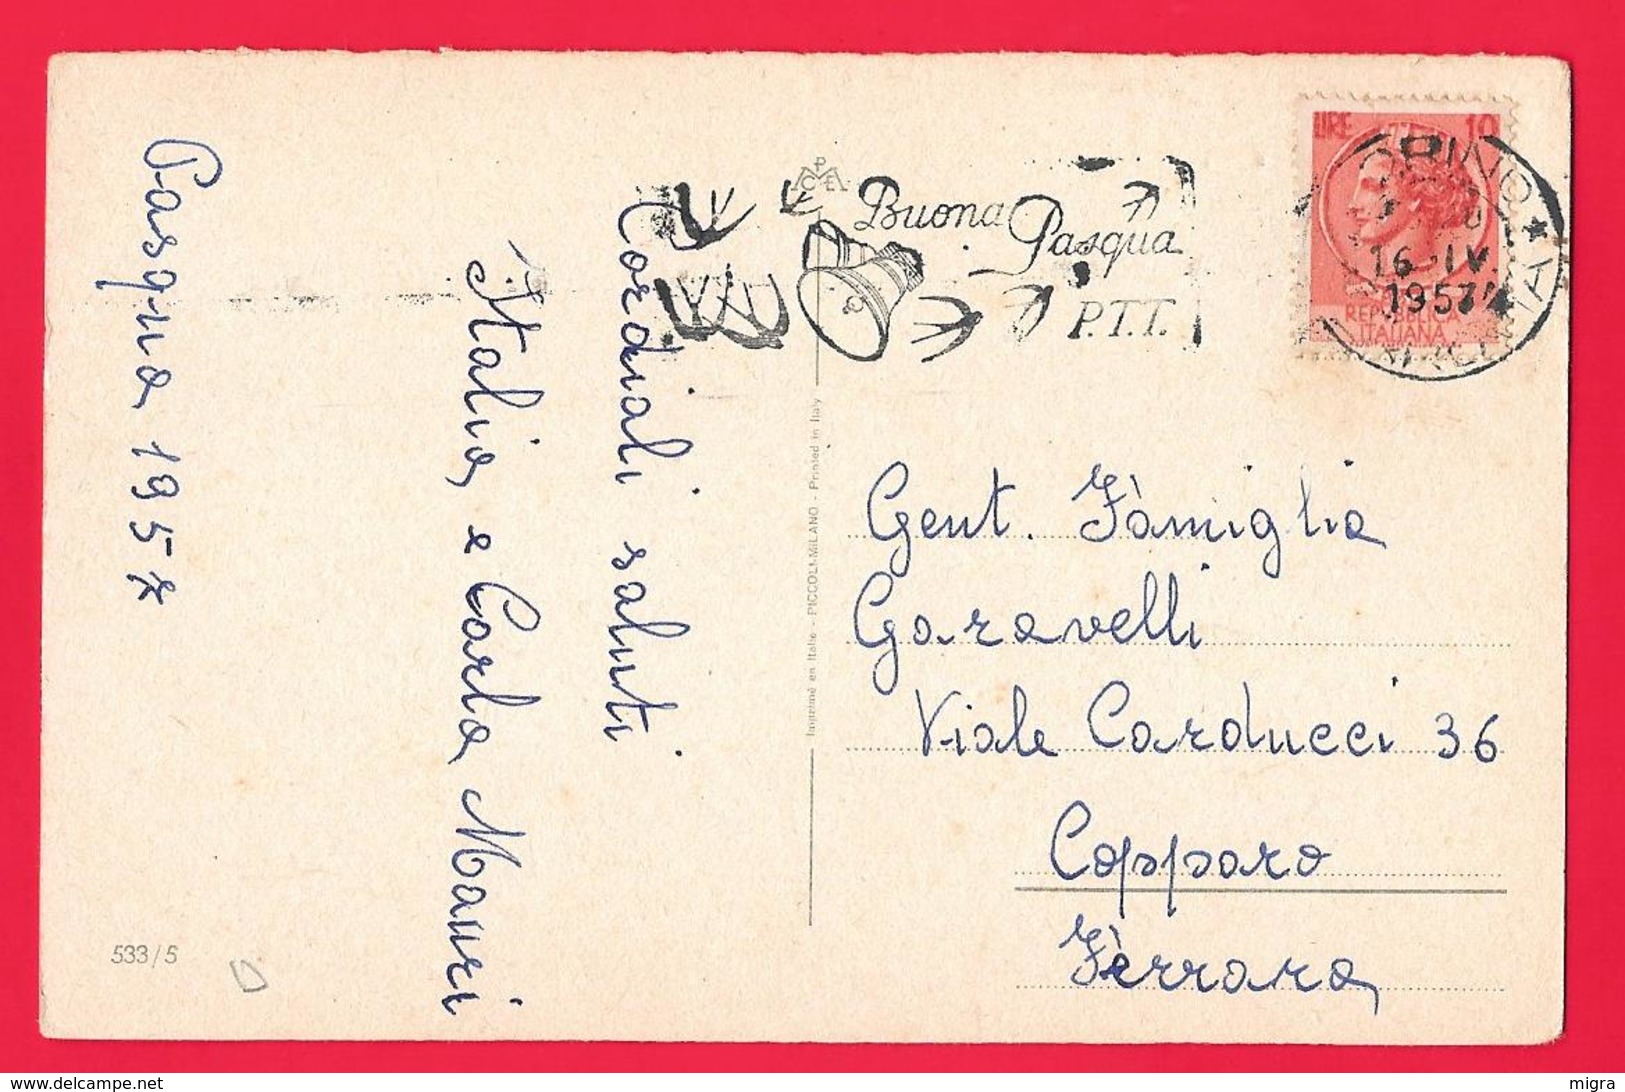 Pasqua 1957
Cordiali saluti
Italia e Carla Mauri
533/5
Imprimé en Italie - PICCOLI-MILANO - Printed in Italy
Buona
Pasqua
P.T.T.
LIRE 10
16-IV.
1957
REPUBBLICA
ITALIANA
Gent. Fàmiglia
Garavelli
Viale Carducci 36
Copparo
Fèrrara
delcampe.net
migra